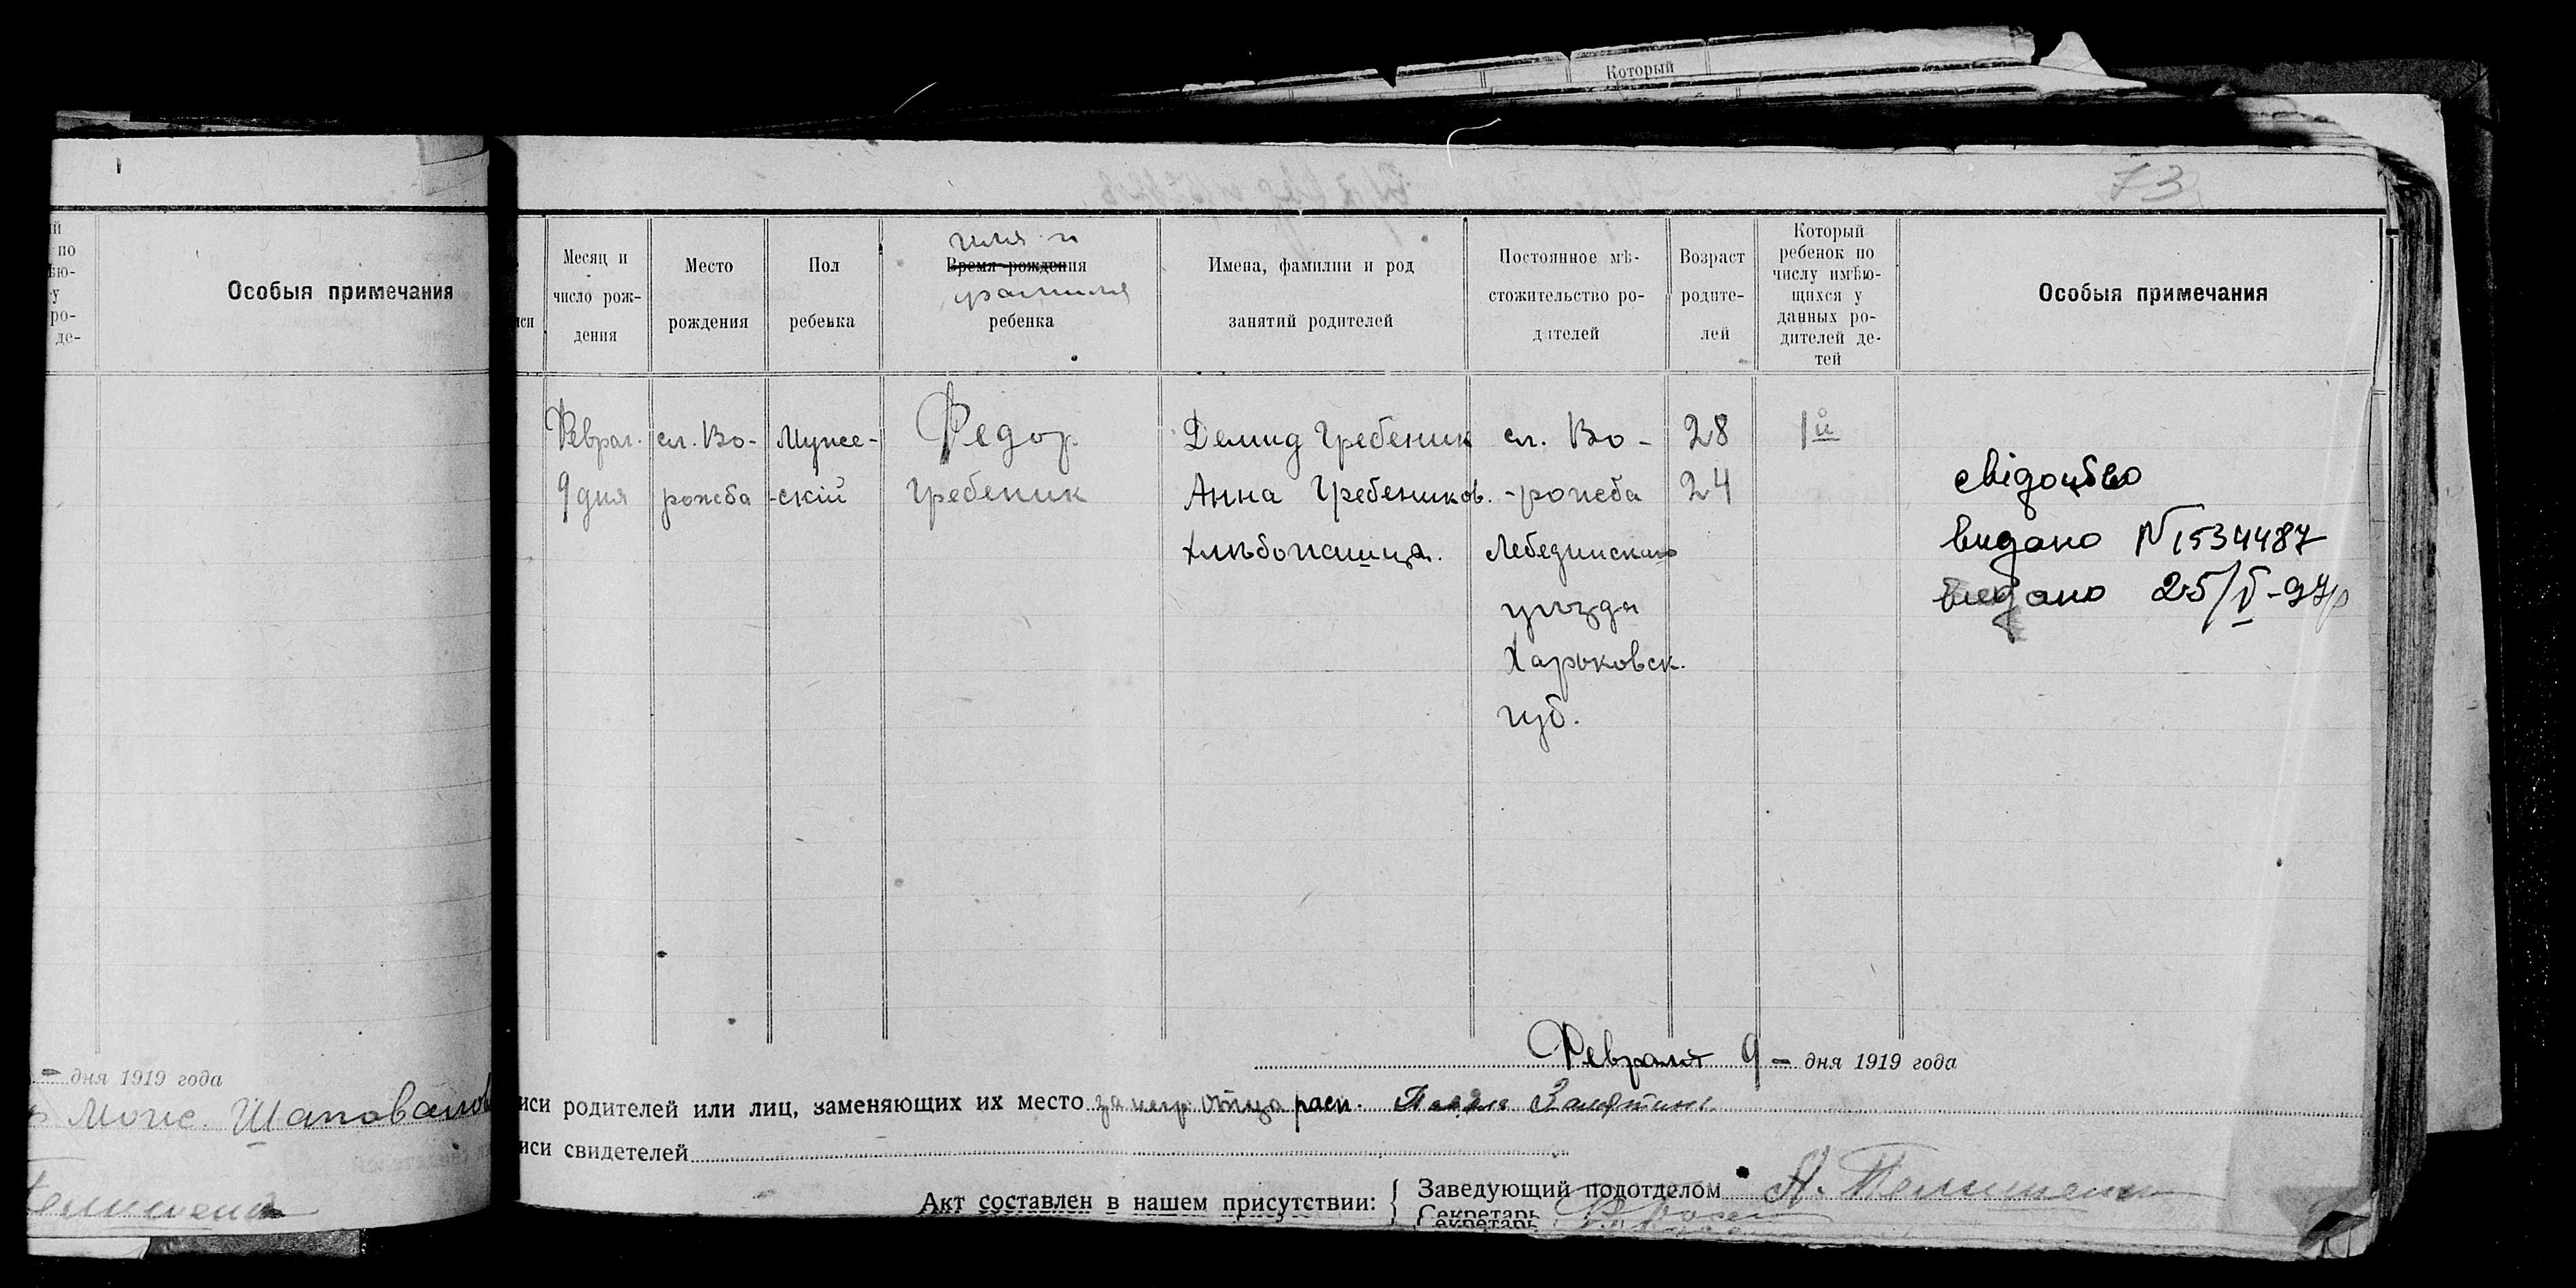 Который
73
й
по
ѣю-
у
ро-
де-
Особыя примечания
— дня 1919 года
Моис. Шаповалов
иси
Месяц и
число рож-
дения
Место
рождения
Пол
ребенка
имя и
Время рождения
фамилия
ребенка
Имена, фамилии и род
занятий родителей
Постоянное мѣ-
стожительство ро-
дителей
Возраст
родите-
лей
Который
ребенок по
числу имѣю-
щихся у
данных ро-
дителей де-
тей
Особыя примечания
Феврал.
9 дня
сл. Во-
рожба
Муже-
-скій
Федор
Гребеник
Демид Гребеник
Анна Гребеников.
Хлѣбопашца.
сл. Во-
-рожба
Лебединскаго
уѣзда
Харьковск.
губ.
28
24
1й
свідоцтво
видано N 1534487
видано 25/V-97р
Февраля 9 — дня 1919 года
иси родителей или лиц, заменяющих их место за негр. отца расп.
иси свидетелей
Акт составлен в нашем присутствии:
Заведующий подотделом
Секретарь
Секретарь